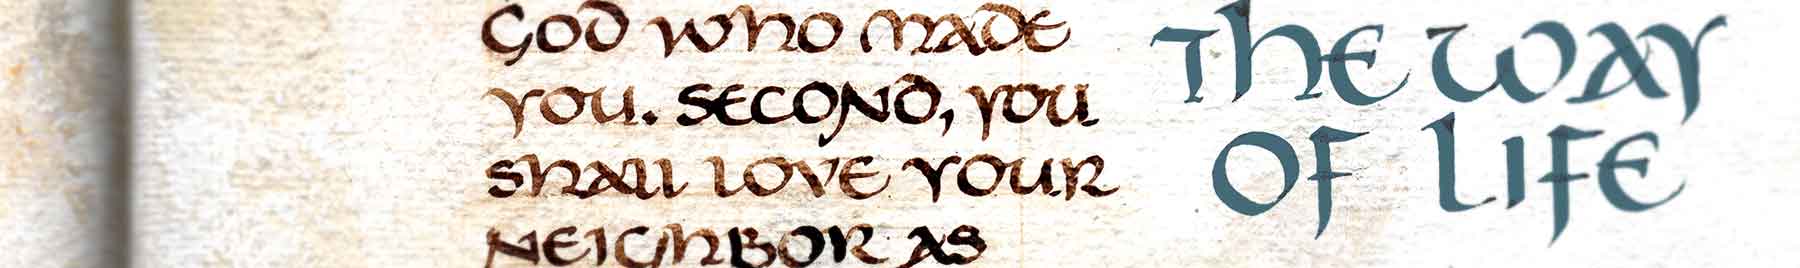 God who made
you. Second, you
shall love your
neighbor as
The Way
of Life